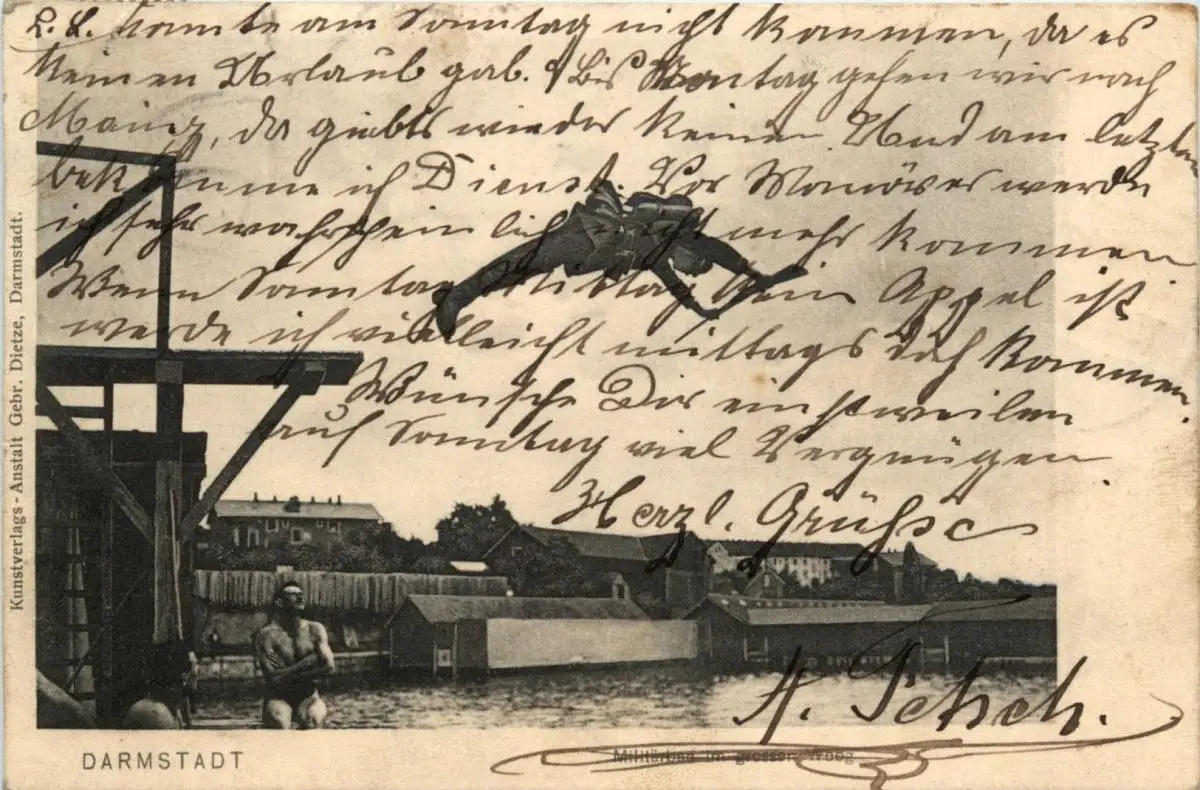 L. L. konnte am Sonntag nicht kommen, da es
keinen Urlaub gab. Bis Montag gehen wir nach
Mainz, da giebts wieder keinen. Und am letzten
bekomme ich Dienst. Vor Manöver werde
ich sehr wahrscheinlich nicht mehr kommen
Wenn Sonntag Mittag kein Appel ist
werde ich vielleicht mittags doch kommen.
Wünsche Dir einstweilen
auf Sonntag viel Vergnügen
Herzl. Grüsse
Kunstverlags-Anstalt Gebr. Dietze, Darmstadt.
DARMSTADT
Militärbad im grossen Woog